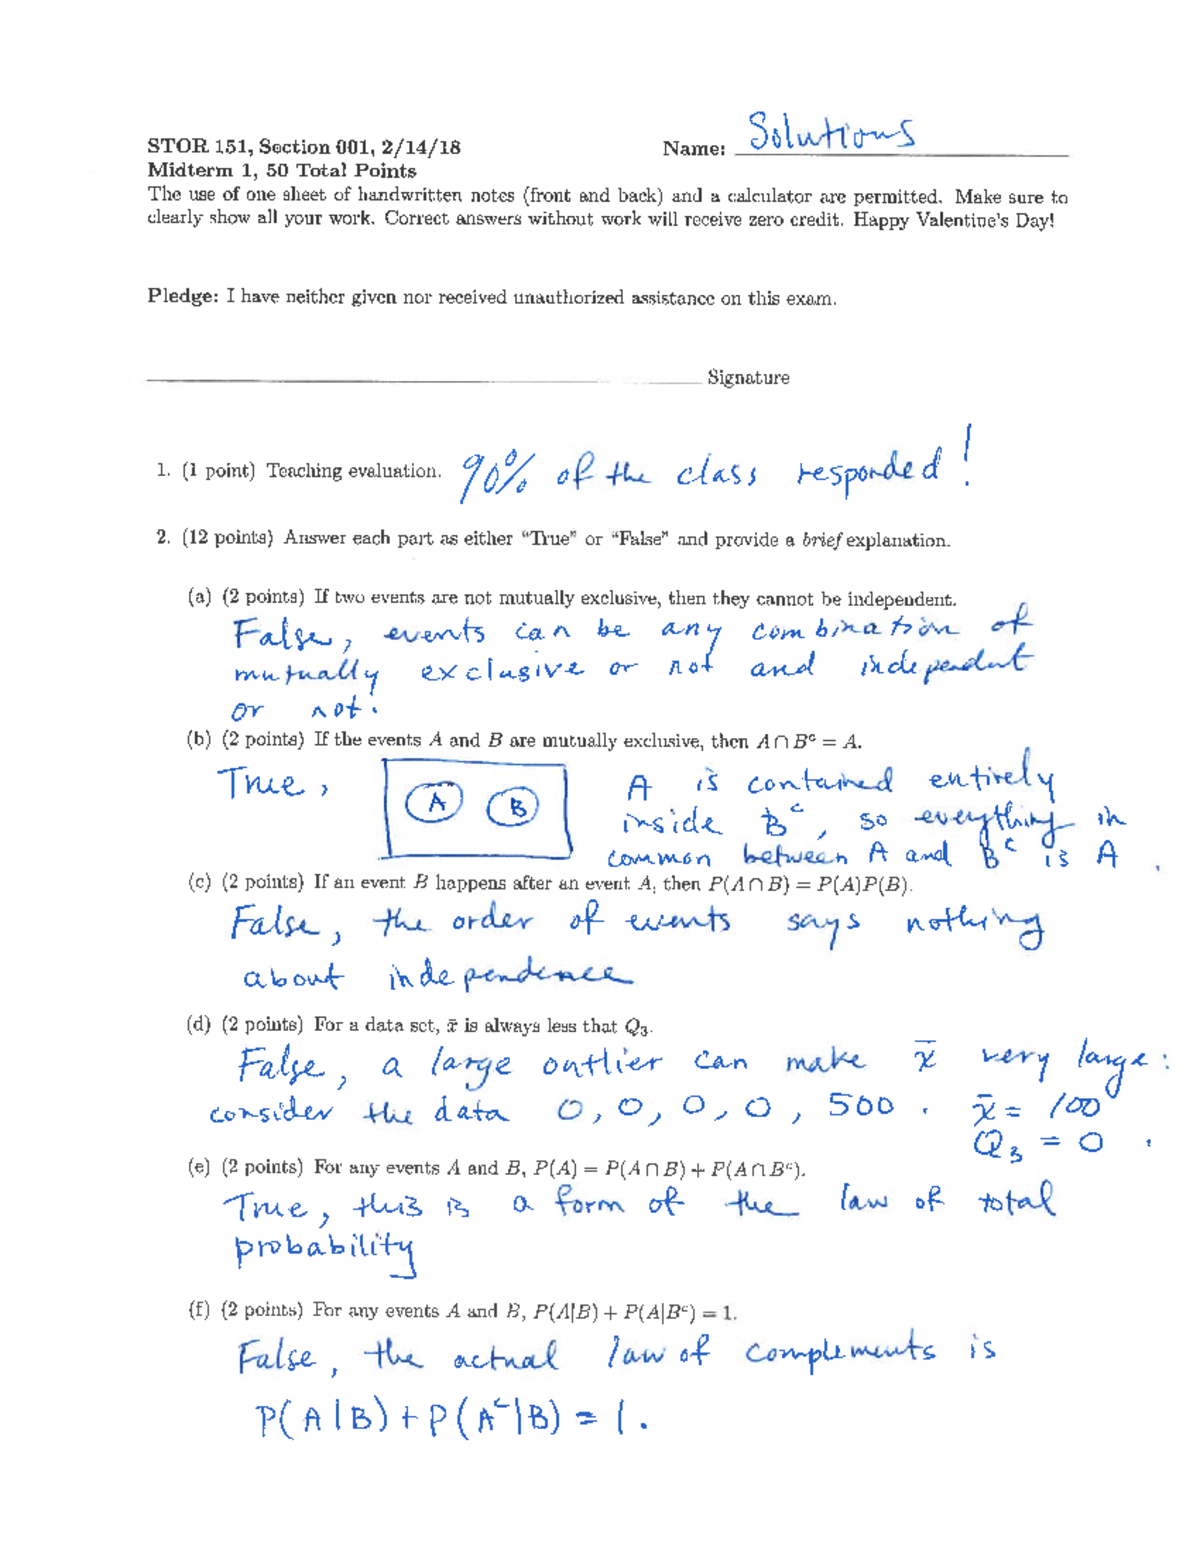 STOR 151, Section 001, 2/14/18 Name: Solutions
Midterm 1, 50 Total Points
The use of one sheet of handwritten notes (front and back) and a calculator are permitted. Make sure to
clearly show all your work. Correct answers without work will receive zero credit. Happy Valentine's Day!
Pledge: I have neither given nor received unauthorized assistance on this exam.
Signature
1. (1 point) Teaching evaluation. 90% of the class responded!
2. (12 points) Answer each part as either “True” or “False” and provide a brief explanation.
(a) (2 points) If two events are not mutually exclusive, then they cannot be independent.
False, events can be any combination of
mutually exclusive or not and independent
or not.
(b) (2 points) If the events A and B are mutually exclusive, then A ∩ Bᶜ = A.
True, A B A is contained entirely
inside Bᶜ, so everything in
common between A and Bᶜ is A.
(c) (2 points) If an event B happens after an event A, then P(A ∩ B) = P(A)P(B).
False, the order of events says nothing
about independence
(d) (2 points) For a data set, x̄ is always less that Q₃.
False, a large outlier can make x̄ very large:
consider the data 0, 0, 0, 0, 500. x̄ = 100
Q₃ = 0.
(e) (2 points) For any events A and B, P(A) = P(A ∩ B) + P(A ∩ Bᶜ).
True, this is a form of the law of total
probability
(f) (2 points) For any events A and B, P(A|B) + P(A|Bᶜ) = 1.
False, the actual law of complements is
P(A|B) + P(Aᶜ|B) = 1.